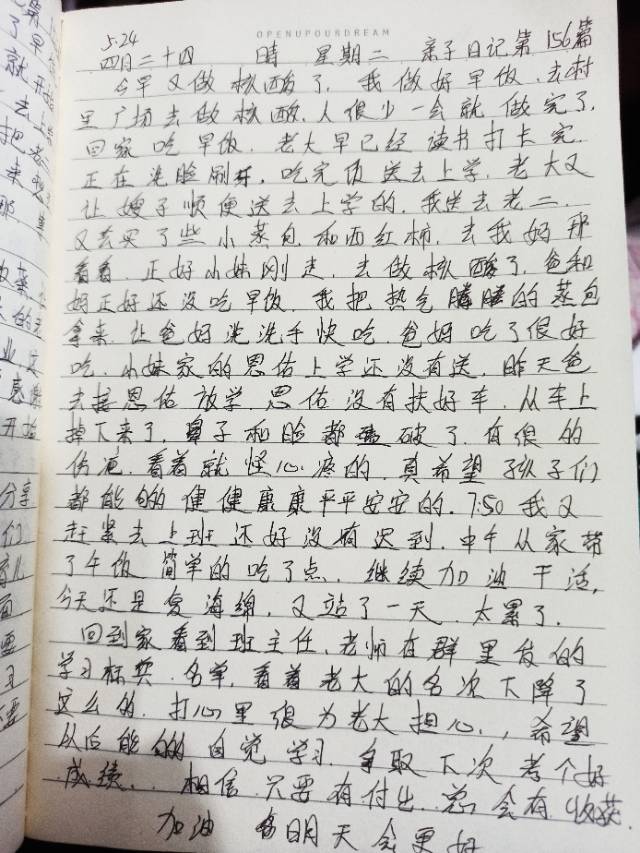 OPENUPOURDREAM
5.24
四月二十四 晴 星期二 亲子日记第156篇
今早又做核酸了，我做好早饭，去村
里广场去做核酸，人很少一会就做完了，
回家吃早饭，老大早已经读书打卡完，
正在洗脸刷牙，吃完饭送去上学，老大又
让嫂子顺便送去上学的，我送去老二，
又去买了些小蒸包和西红柿，去我妈那
看看，正好小妹刚走，去做核酸了，爸和
妈正好还没吃早饭，我把热气腾腾的蒸包
拿来，让爸妈洗洗手快吃，爸妈吃了很好
吃，小妹家的恩佑上学还没有送，昨天爸
去接恩佑放学，恩佑没有扶好车，从车上
掉下来了，鼻子和脸都破了，有很的
伤疤，看着就怪心疼的，真希望孩子们
都能的健健康康平平安安的，7:50我又
赶紧去上班还好没有迟到，中午从家带
了午饭简单的吃了点，继续加油干活，
今天还是复海绵，又站了一天，太累了，
回到家看到班主任，老师在群里发的
学习标奖，名单，看着老大的名次下降了
这么的，打心里很为老大担心，，希望
从后能的自觉学习，争取下次考个好
成绩，相信只要有付出，总会有收获
加油 明天会更好